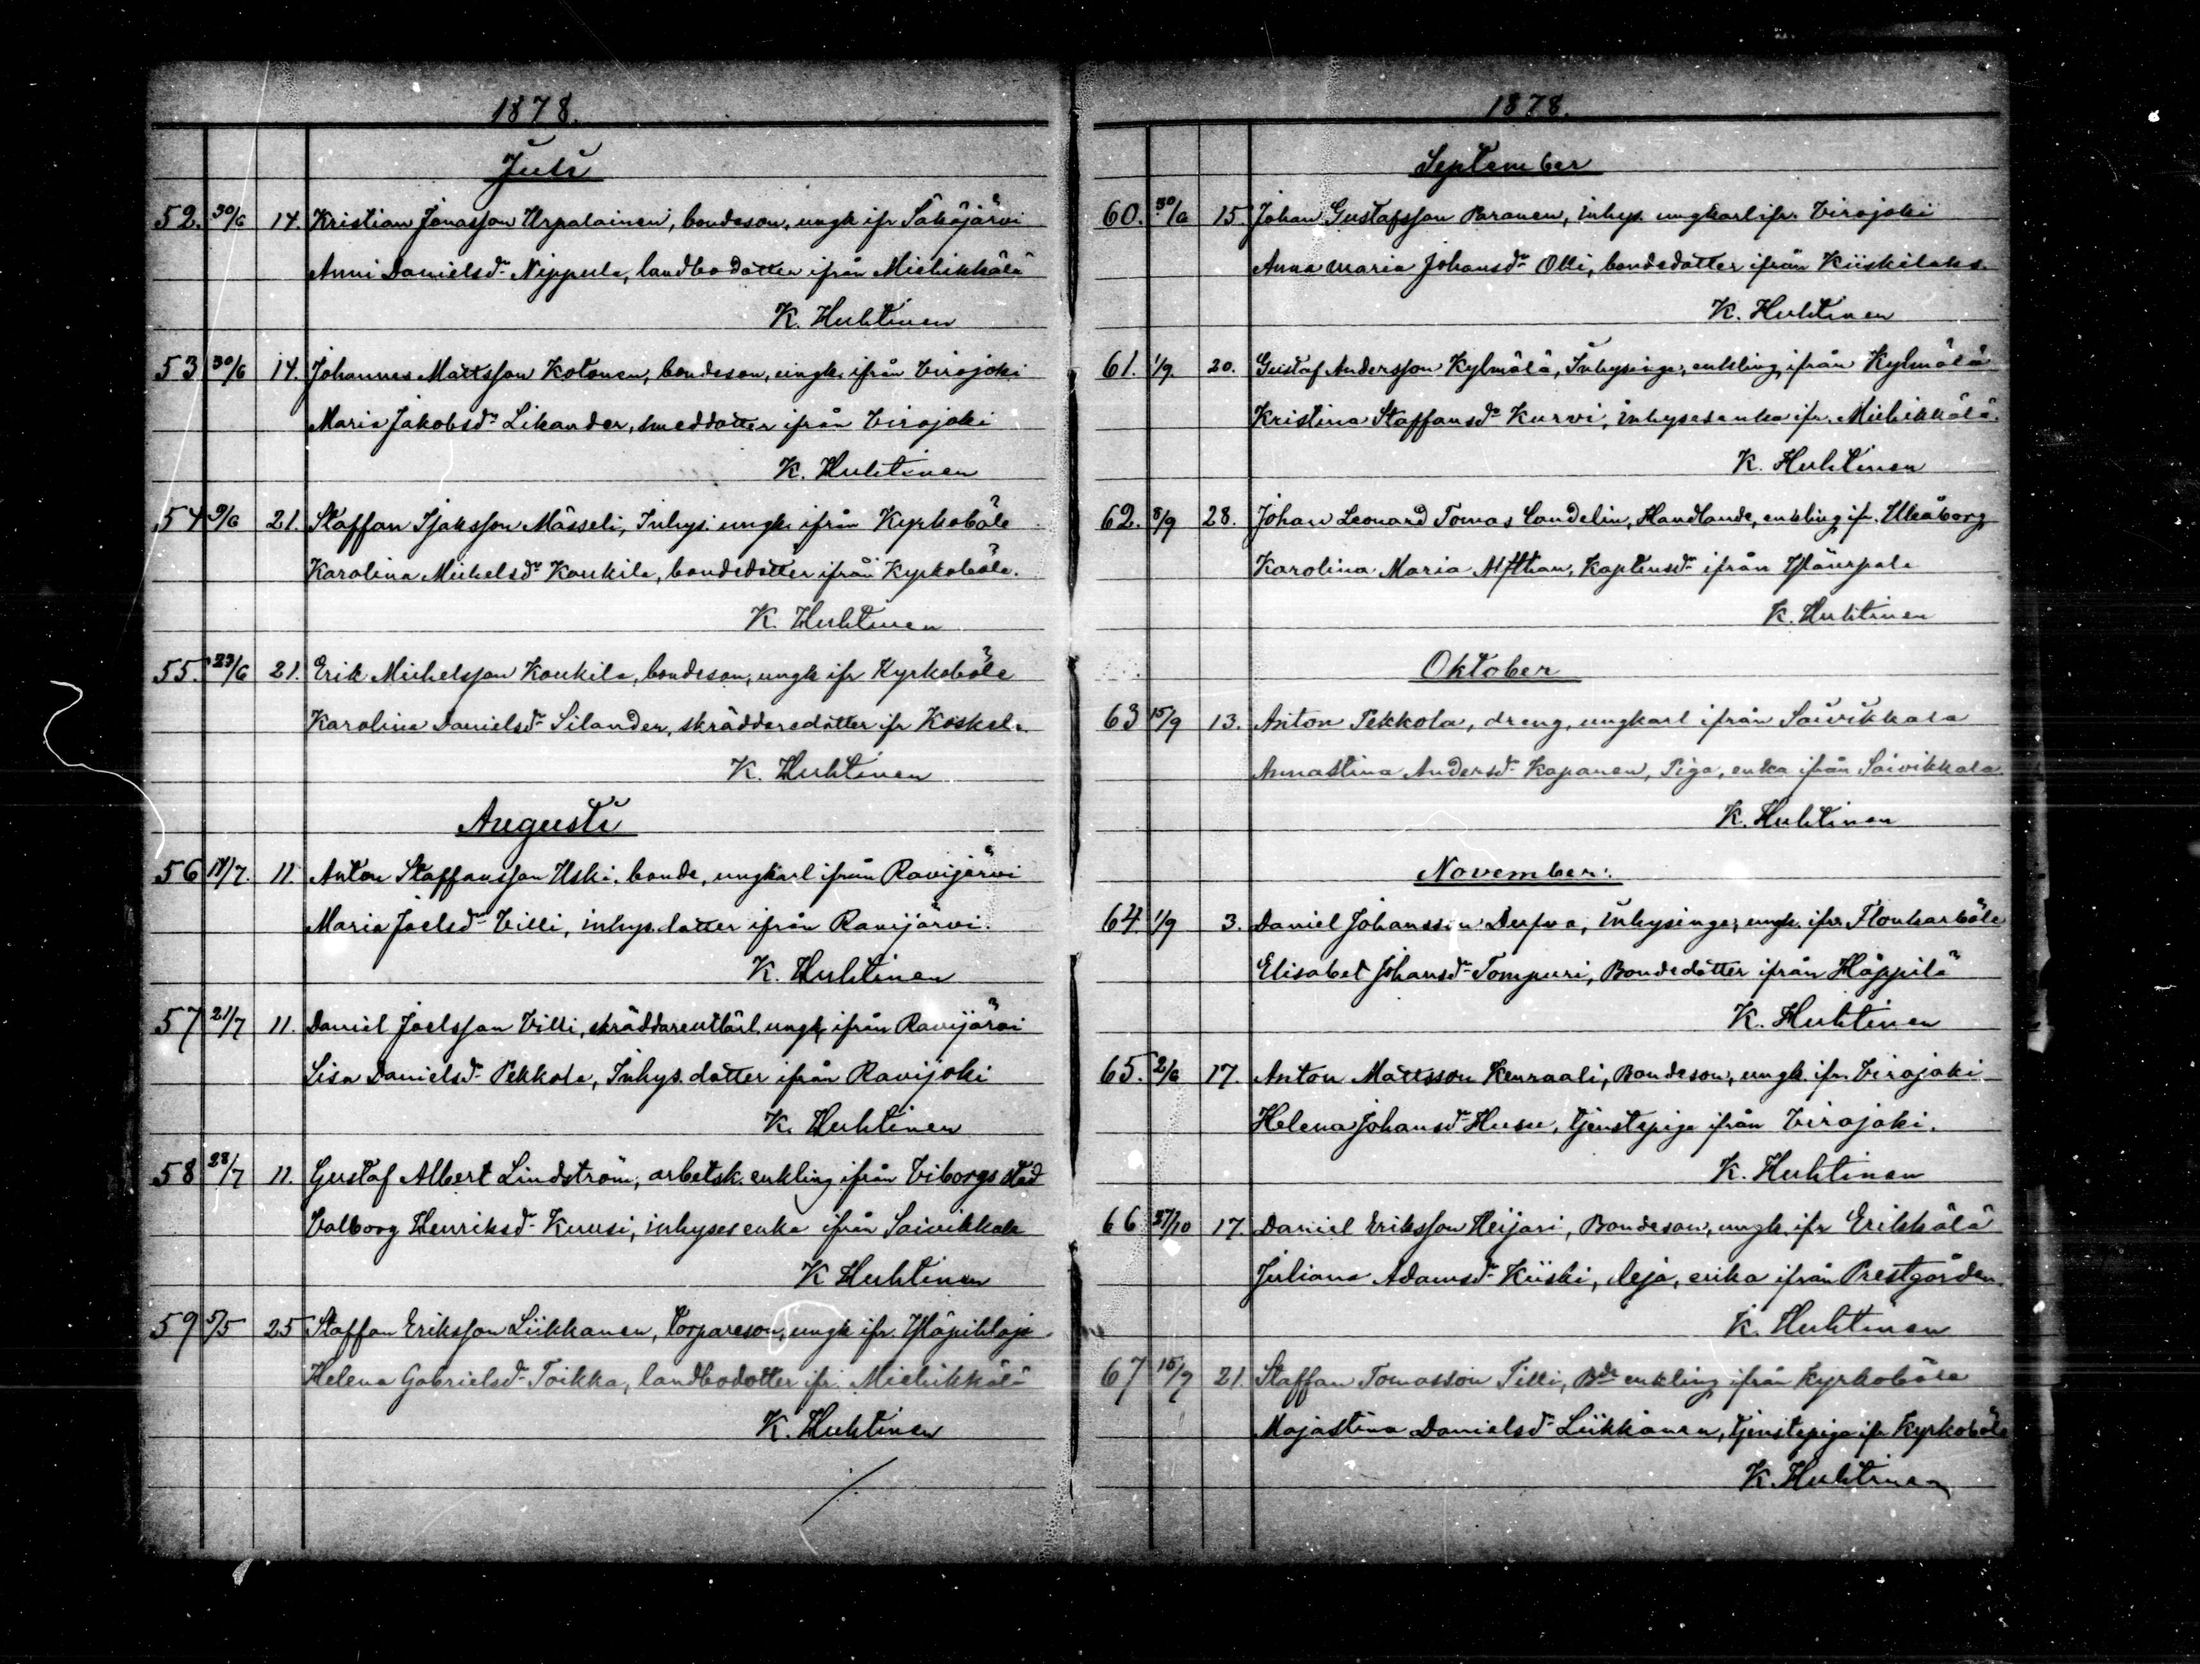 1878.
Juli
52. 30/6 14. Kristian Jonasson Urpalainen, bondeson, ungk ifr Säkäjärvi
Anni Danielsdr Nippula, landbodotter ifrån Miehikkälä
K. Huhtinen
53 30/6 14. Johannes Mattsson Kotonen, bondeson, ungk. ifrån Virojoki
Maria Jakobsdr Likander, smeddotter ifrån Virojoki
K. Huhtinen
54 9/6 21. Staffan Isaksson Mässeli, Inhys. ungk. ifrån Kyrkoböle
Karolina Michelsdr Koukila, bondedotter ifrån Kyrkoböle.
K. Huhtinen
55. 23/6 21. Erik Michelsson Koukila, bondeson, ungk ifr Kyrkoböle
Karolina Danielsdr Silander, skräddaredotter ifr Koskela.
K. Huhtinen
Augusti
56 14/7. 11. Anton Staffansson Uski, bonde, ungkarl ifrån Ravijärvi
Maria Joelsdr Villi, inhys.dotter ifrån Ravijärvi.
K. Huhtinen
57 21/7 11. Daniel Joelsson Villi, ungk, ifrån Ravijärvi
Lisa Danielsdr Pekkola, Inhys.dotter ifrån Ravijoki
K. Huhtinen
58 28/7 11. Gustaf Albert Lindström, arbetsk. enkling ifrån Viborgs stad
Valborg Henriksdr Kuusi, inhyses enka ifrån Saivikkala
K Huhtinen
59 5/5 25 Staffan Eriksson Liikkanen, Torpareson, ungk ifr.
Helena Gabrielsdr Toikka, landbodotter ifr. Miehikkälä
K. Huhtinen
1878.
September
60. 30/6 15. Johan Gustafsson Paranen, inhys. ungkarl ifr. Virojoki
Anna Maria Johansdr Olli, bondedotter ifrån Kiiskilaks.
K. Huhtinen
61. 1/9 20. Gustaf Andersson Kylmälä, Inhysinge, enkling ifrån Kylmälä
Kristina Staffansdr Kurvi, inhysesenka ifr. Miehikkälä.
K. Huhtinen
62. 8/9 28. Johan Leonard Tomas Candelin, Handlande, enkling ifr. Uleåborg
Karolina Maria Alfthan, Kaptensdr ifrån
K. Huhtinen
Oktober
63 15/9 13. Anton Pekkola, dreng, ungkarl ifrån Saivikkala
Annastina Andersdr Kapanen, Piga, enka ifrån Saivikkala.
K. Huhtinen
November.
64. 1/9 3. Daniel Johansson Inhysinge, ungk. ifr.
Elisabet Johansdr Tompuri, Bondedotter ifrån Häppilä
K. Huhtinen
65. 2/6 17. Anton Mattsson Kenraali, Bondeson, ungk. ifr. Virojoki
Helena Johansdr Husu, tjenstepiga ifrån Virojoki.
K. Huhtinen
66 27/10 17. Daniel Eriksson Heijari, Bondeson, ungk. ifr Erikkälä
Juliana Adamsdr Kiiski, leja, enka ifrån Prestgården.
K. Huhtinen
67 15/9 21. Staffan Tomasson Tilli, Bde enkling ifrån Kyrkoböle
Majastina Danielsdr Liikkanen, tjenstepiga ifr Kyrkoböle
K. Huhtinen